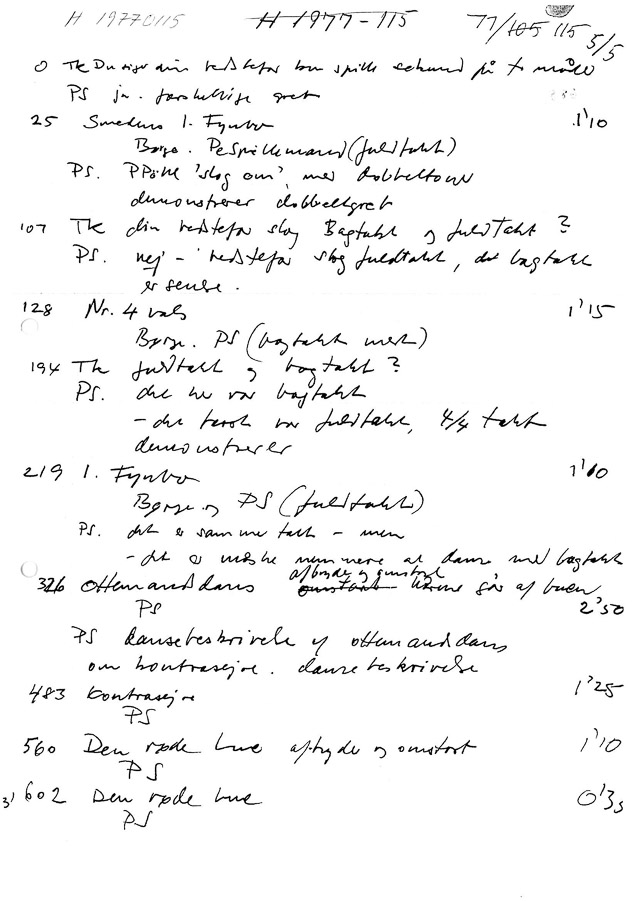 H 19770115 H 1977-115 77/105 115 5/5
0 TK Du siger din bedstefar kun spille sekund på to måder
PS ja. forskellige gret
25 Smedens 1. Fynbo 1'10
Børge. PS spillemand (fuldtakt)
PS. PPølle 'slog om', med dobbelttoner
demonstrerer dobbeltgreb
107 TK din bedstefar slog Bagtakt og fuldTakt?
PS. nej - bedstefar slog fuldtakt, det bagtakt
er senere.
128 Nr. 4 vals 1'15
Børge. PS (bagtakt mest)
194 TK fuldtakt og bagtakt?
PS. det her var bagtakt
- det første var fuldtakt, 4/4 takt
demonstrerer
219 1. Fynbo 1'10
Børge og PS (fuldtakt)
PS. det er samme takt - men
- det er måske nemmere at danse med bagtakt
326 Ottemandsdans afbrydes og omstart omstart går af buen
PS 2'50
PS dansebeskrivelse af ottemandsdans
om kontrasejre. dansebeskrivelse
483 Kontrasejre 1'25
PS
560 Den røde hue afbryder og omstart 1'10
PS
31 602 Den røde hue 0'35
PS